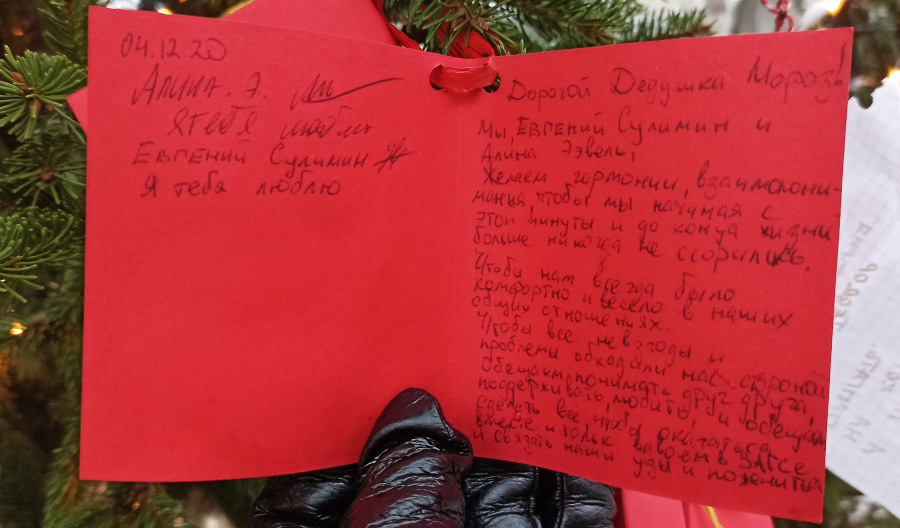 04.12.20
Алина. Э.
Я тебя люблю
Евгений Сулимин
Я тебя люблю
Дорогой Дедушка Мороз!
Мы, Евгений Сулимин и
Алина Ээвель,
Желаем гармонии, взаимопони-
мания, чтобы мы начиная с
этой минуты и до конца жизни
больше никогда не ссорились.
Чтобы нам всегда было
комфортно и весело в наших
общих отношениях.
Чтобы все невзгоды и
проблемы обходили нас стороной
Обещаем понимать друг друга,
поддерживать, любить, и обещаем
сделать всё, чтобы оказаться
вместе и только вдвоем в ЗАГСе
и связать наши узы и пожениться